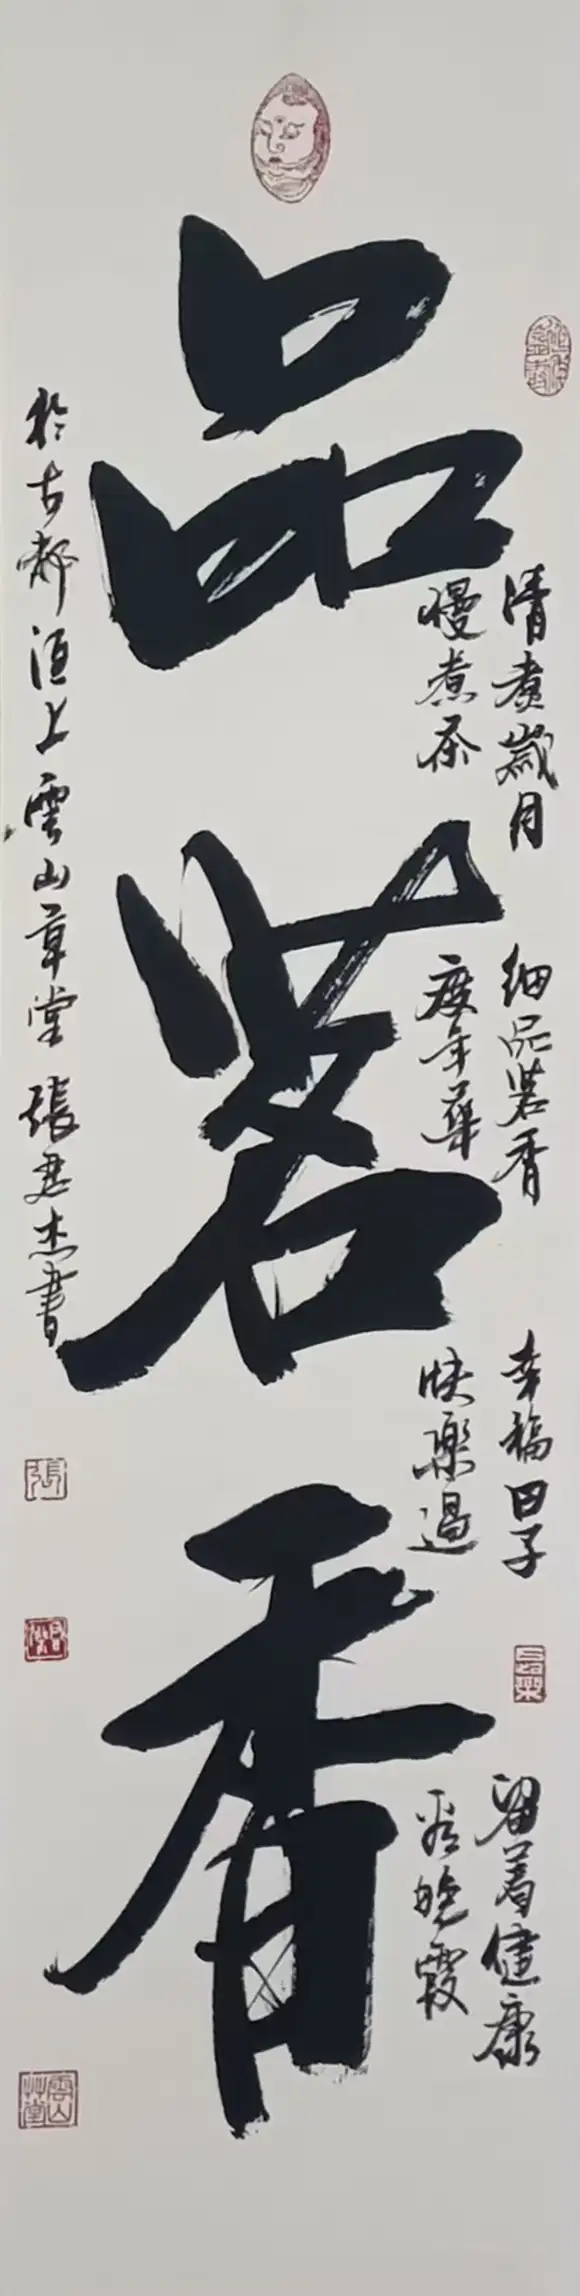 品茗香
清煮歲月
慢煮茶
细品茗香
度年華
幸福日子
快樂過
留着健康
看晚霞
於古都洹上雲山草堂 張君杰書
張
雲山草堂